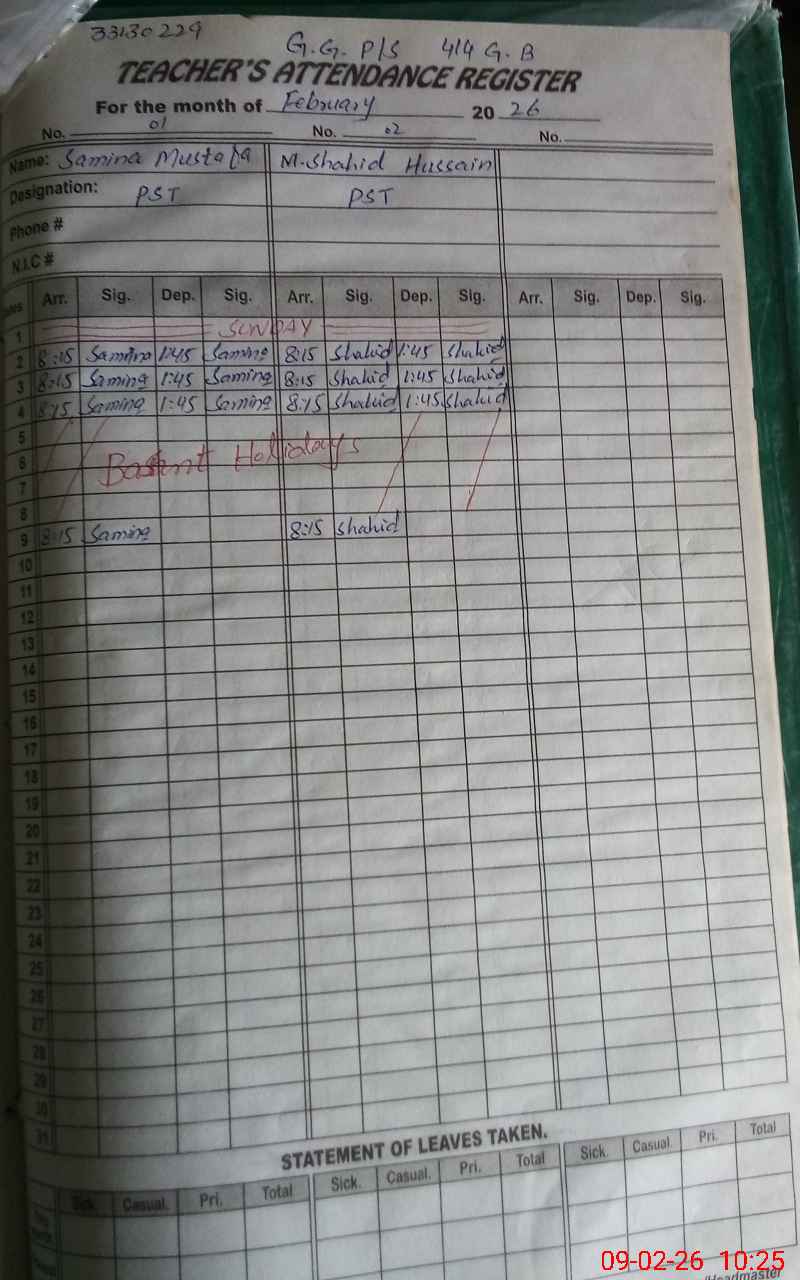 33130229
G.G. P/S 414 G.B
TEACHER'S ATTENDANCE REGISTER
For the month of February 20 26
No. 01 No. 02 No.
Name: Samina Mustafa M. Shahid Hussain
Designation: PST PST
Phone #
N.I.C #
Arr. Sig. Dep. Sig. Arr. Sig. Dep. Sig. Arr. Sig. Dep. Sig.
1 SUNDAY
2 8:15 Samina 1:45 Samina 8:15 Shahid 1:45 Shahid
3 8:15 Samina 1:45 Samina 8:15 Shahid 1:45 Shahid
4 8:15 Samina 1:45 Samina 8:15 Shahid 1:45 Shahid
5
6 Basant Holidays
7
8
9 8:15 Samina 8:15 Shahid
10
11
12
13
14
15
16
17
18
19
20
21
22
23
24
25
26
27
28
29
30
31
STATEMENT OF LEAVES TAKEN.
Sick. Casual. Pri. Total Sick. Casual. Pri. Total Sick. Casual. Pri. Total
09-02-26 10:25
Headmaster